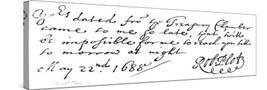 Yrs dated from ye Treasury Chamber
came to me so late, that 'twill
be impossible for me to reach you till
to morrow at night
May 22nd. 1688
Rob: Plot